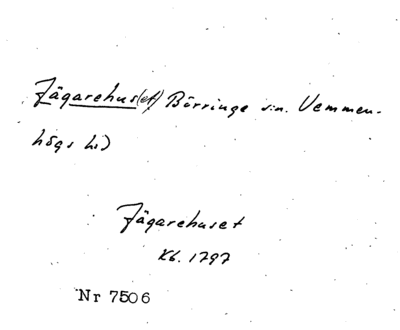 Jägarehus(et) Börringe sn. Vemmen-
högs hd
Jägarehuset
Kb. 1797
Nr 7506